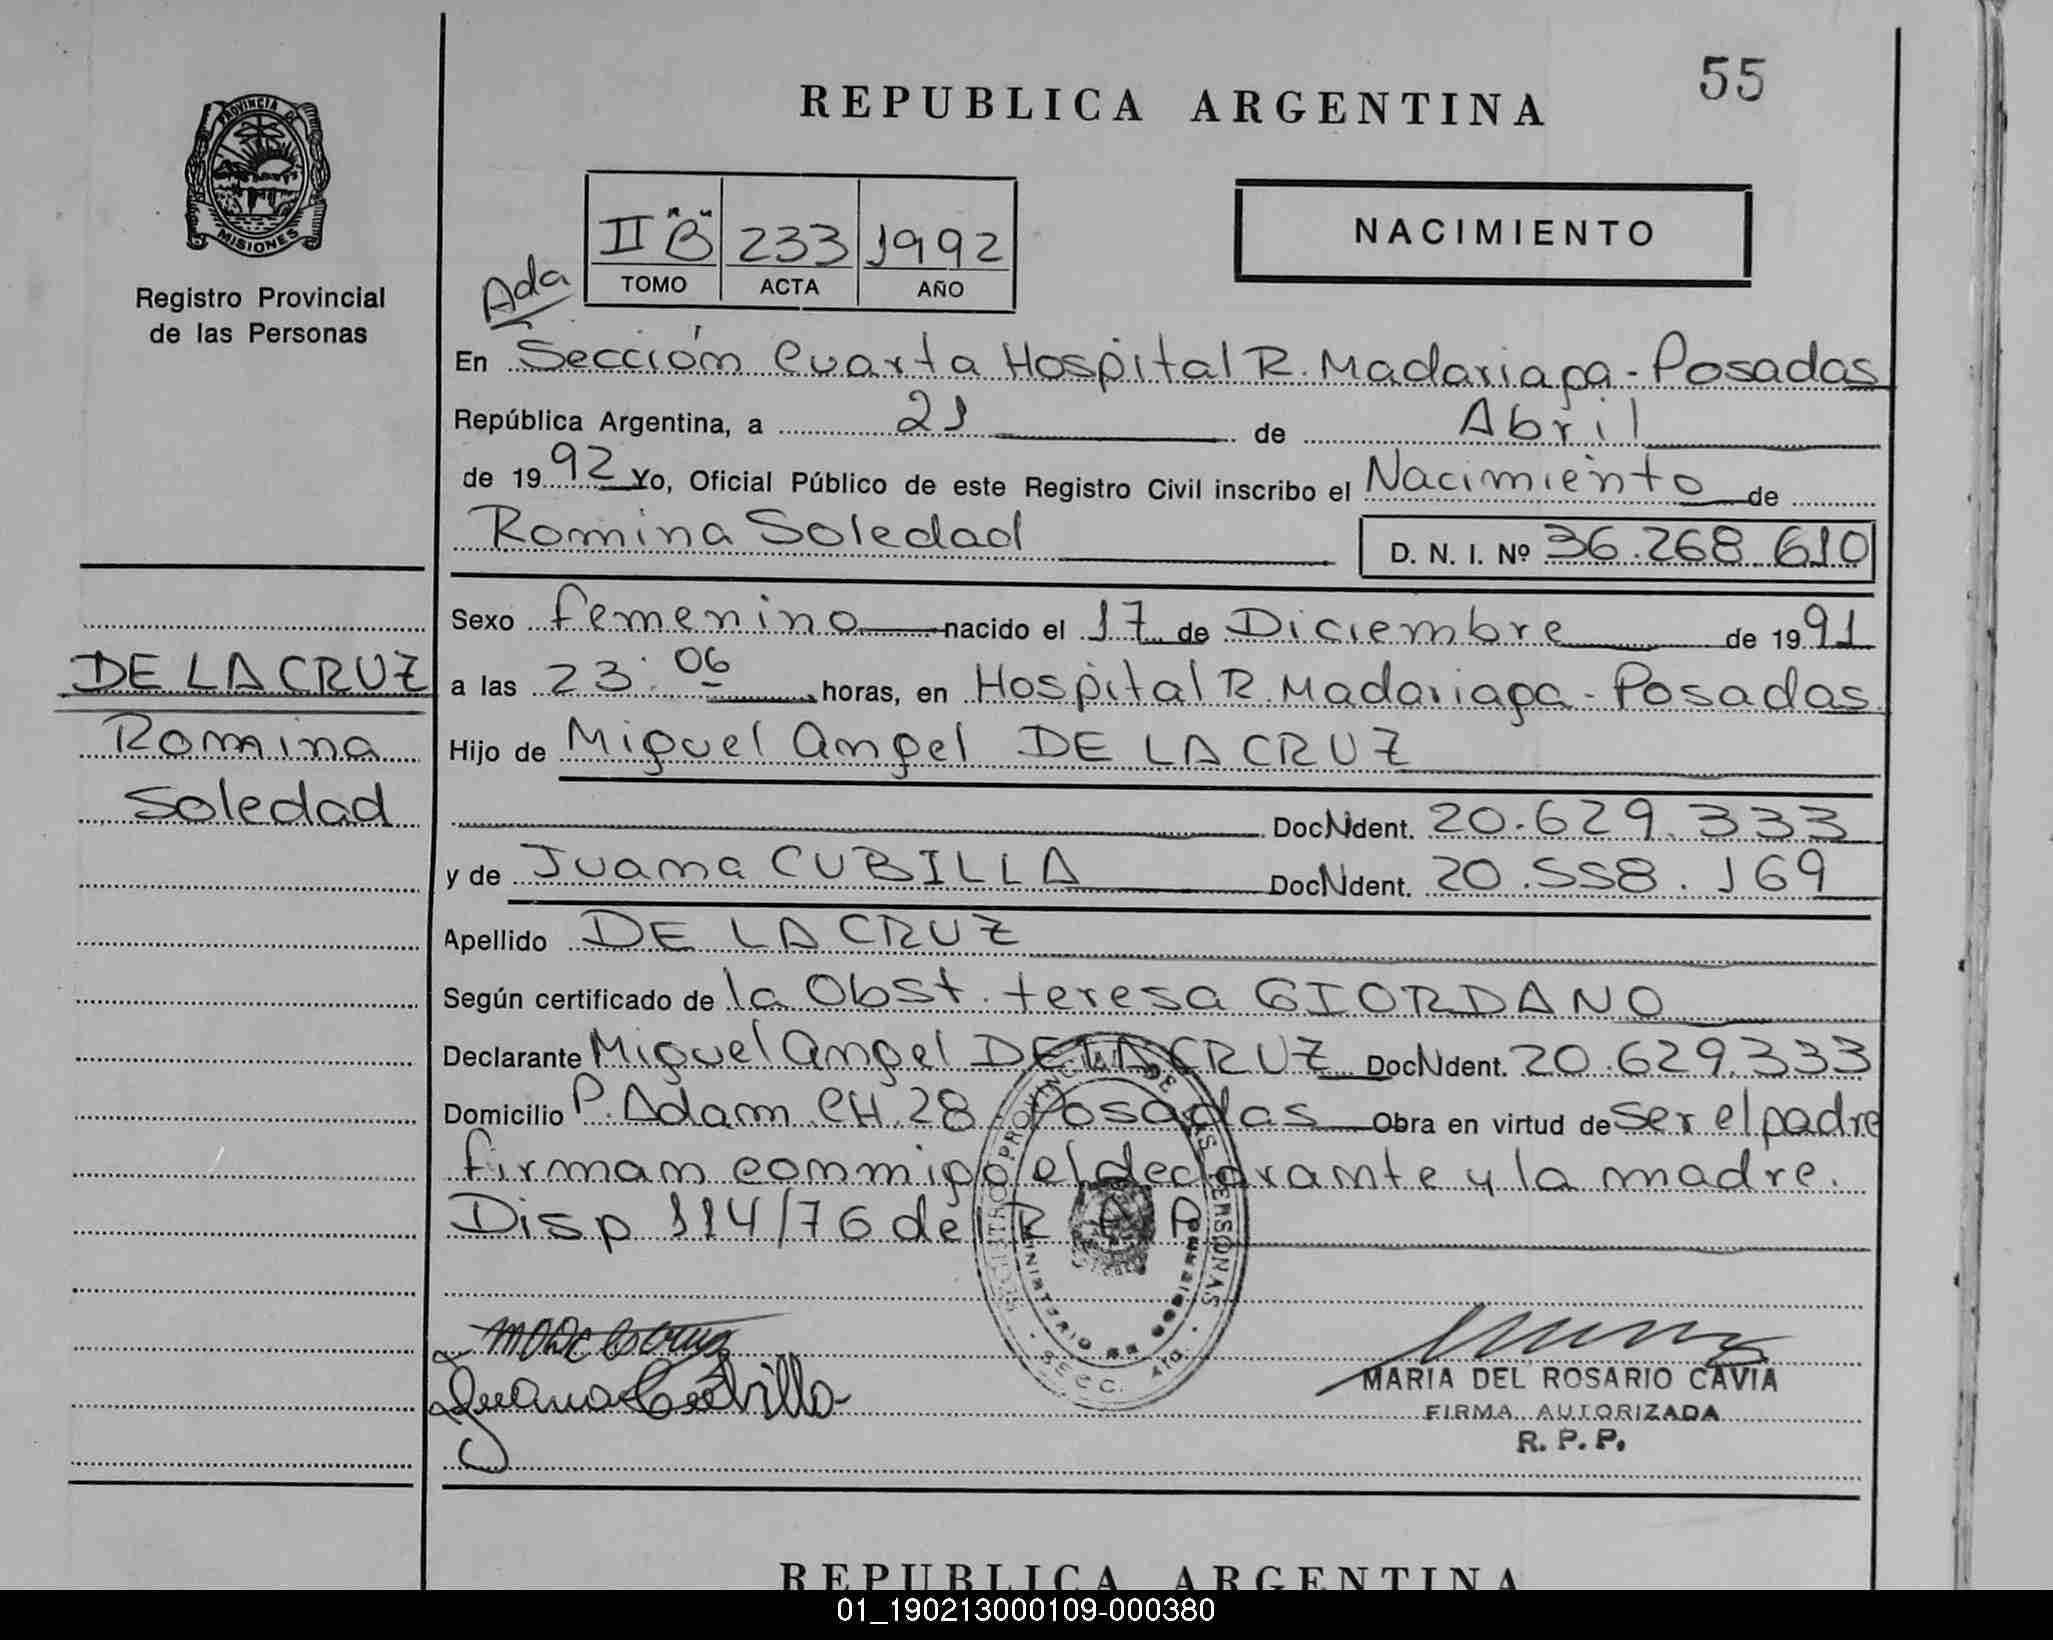 55
REPUBLICA ARGENTINA
PROVINCIA DE
MISIONES
Registro Provincial
de las Personas
II "B" 233 1992
TOMO ACTA AÑO
NACIMIENTO
Ada
En Sección Cuarta Hospital R. Madariaga - Posadas
República Argentina, a 21 de Abril
de 1992 Yo, Oficial Público de este Registro Civil inscribo el Nacimiento de
Romina Soledad D. N. I. Nº 36.268.610
Sexo femenino nacido el 17 de Diciembre de 1991
DE LA CRUZ
Romina
Soledad
a las 23:06 horas, en Hospital R. Madariaga - Posadas
Hijo de Miguel Angel DE LA CRUZ
DocNdent. 20.629.333
y de Juana CUBILLA DocNdent. 20.558.169
Apellido DE LA CRUZ
Según certificado de la Obst. teresa GIORDANO
Declarante Miguel Angel DE LA CRUZ DocNdent. 20.629.333
Domicilio P. Adam CH. 28 Posadas Obra en virtud de ser el padre
firman conmigo el declarante y la madre.
Disp 114/76 del R P
REGISTRO PROVINCIAL DE LAS PERSONAS
MINISTERIO DE GOBIERNO
SECC. 4TO
Juana Cubilla
MARIA DEL ROSARIO CAVIA
FIRMA AUTORIZADA
R. P. P.
REPUBLICA ARGENTINA
01_190213000109-000380